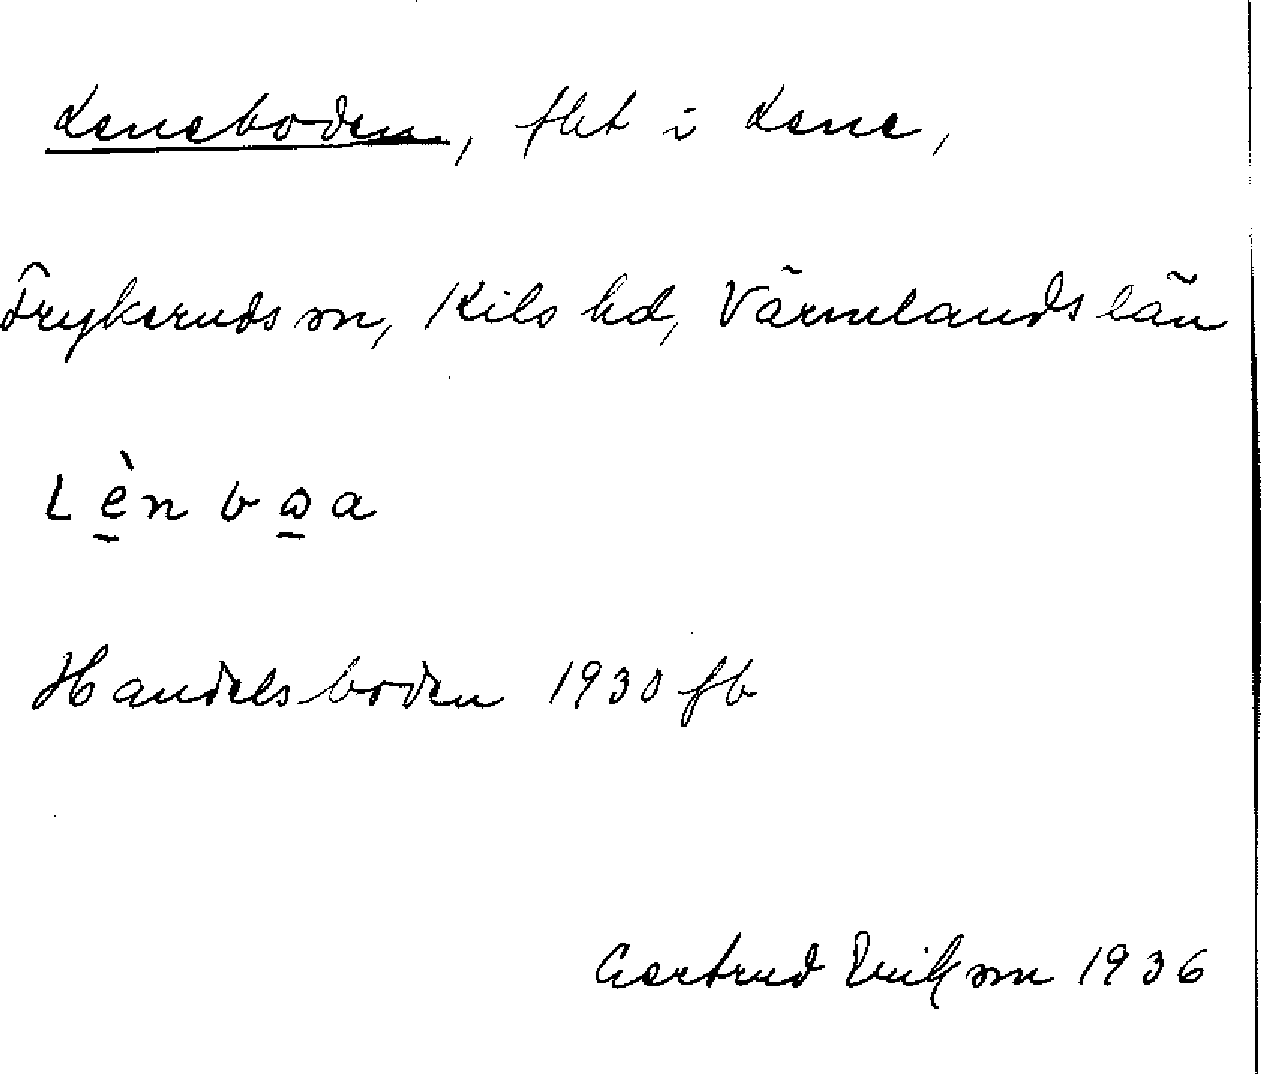 Leneboden, flht i Lene,
Frykeruds sn, Kils hd, Värmlands län
Lèn bωa
Handelsboden 1930 fb
Gertrud Eriksson 1936